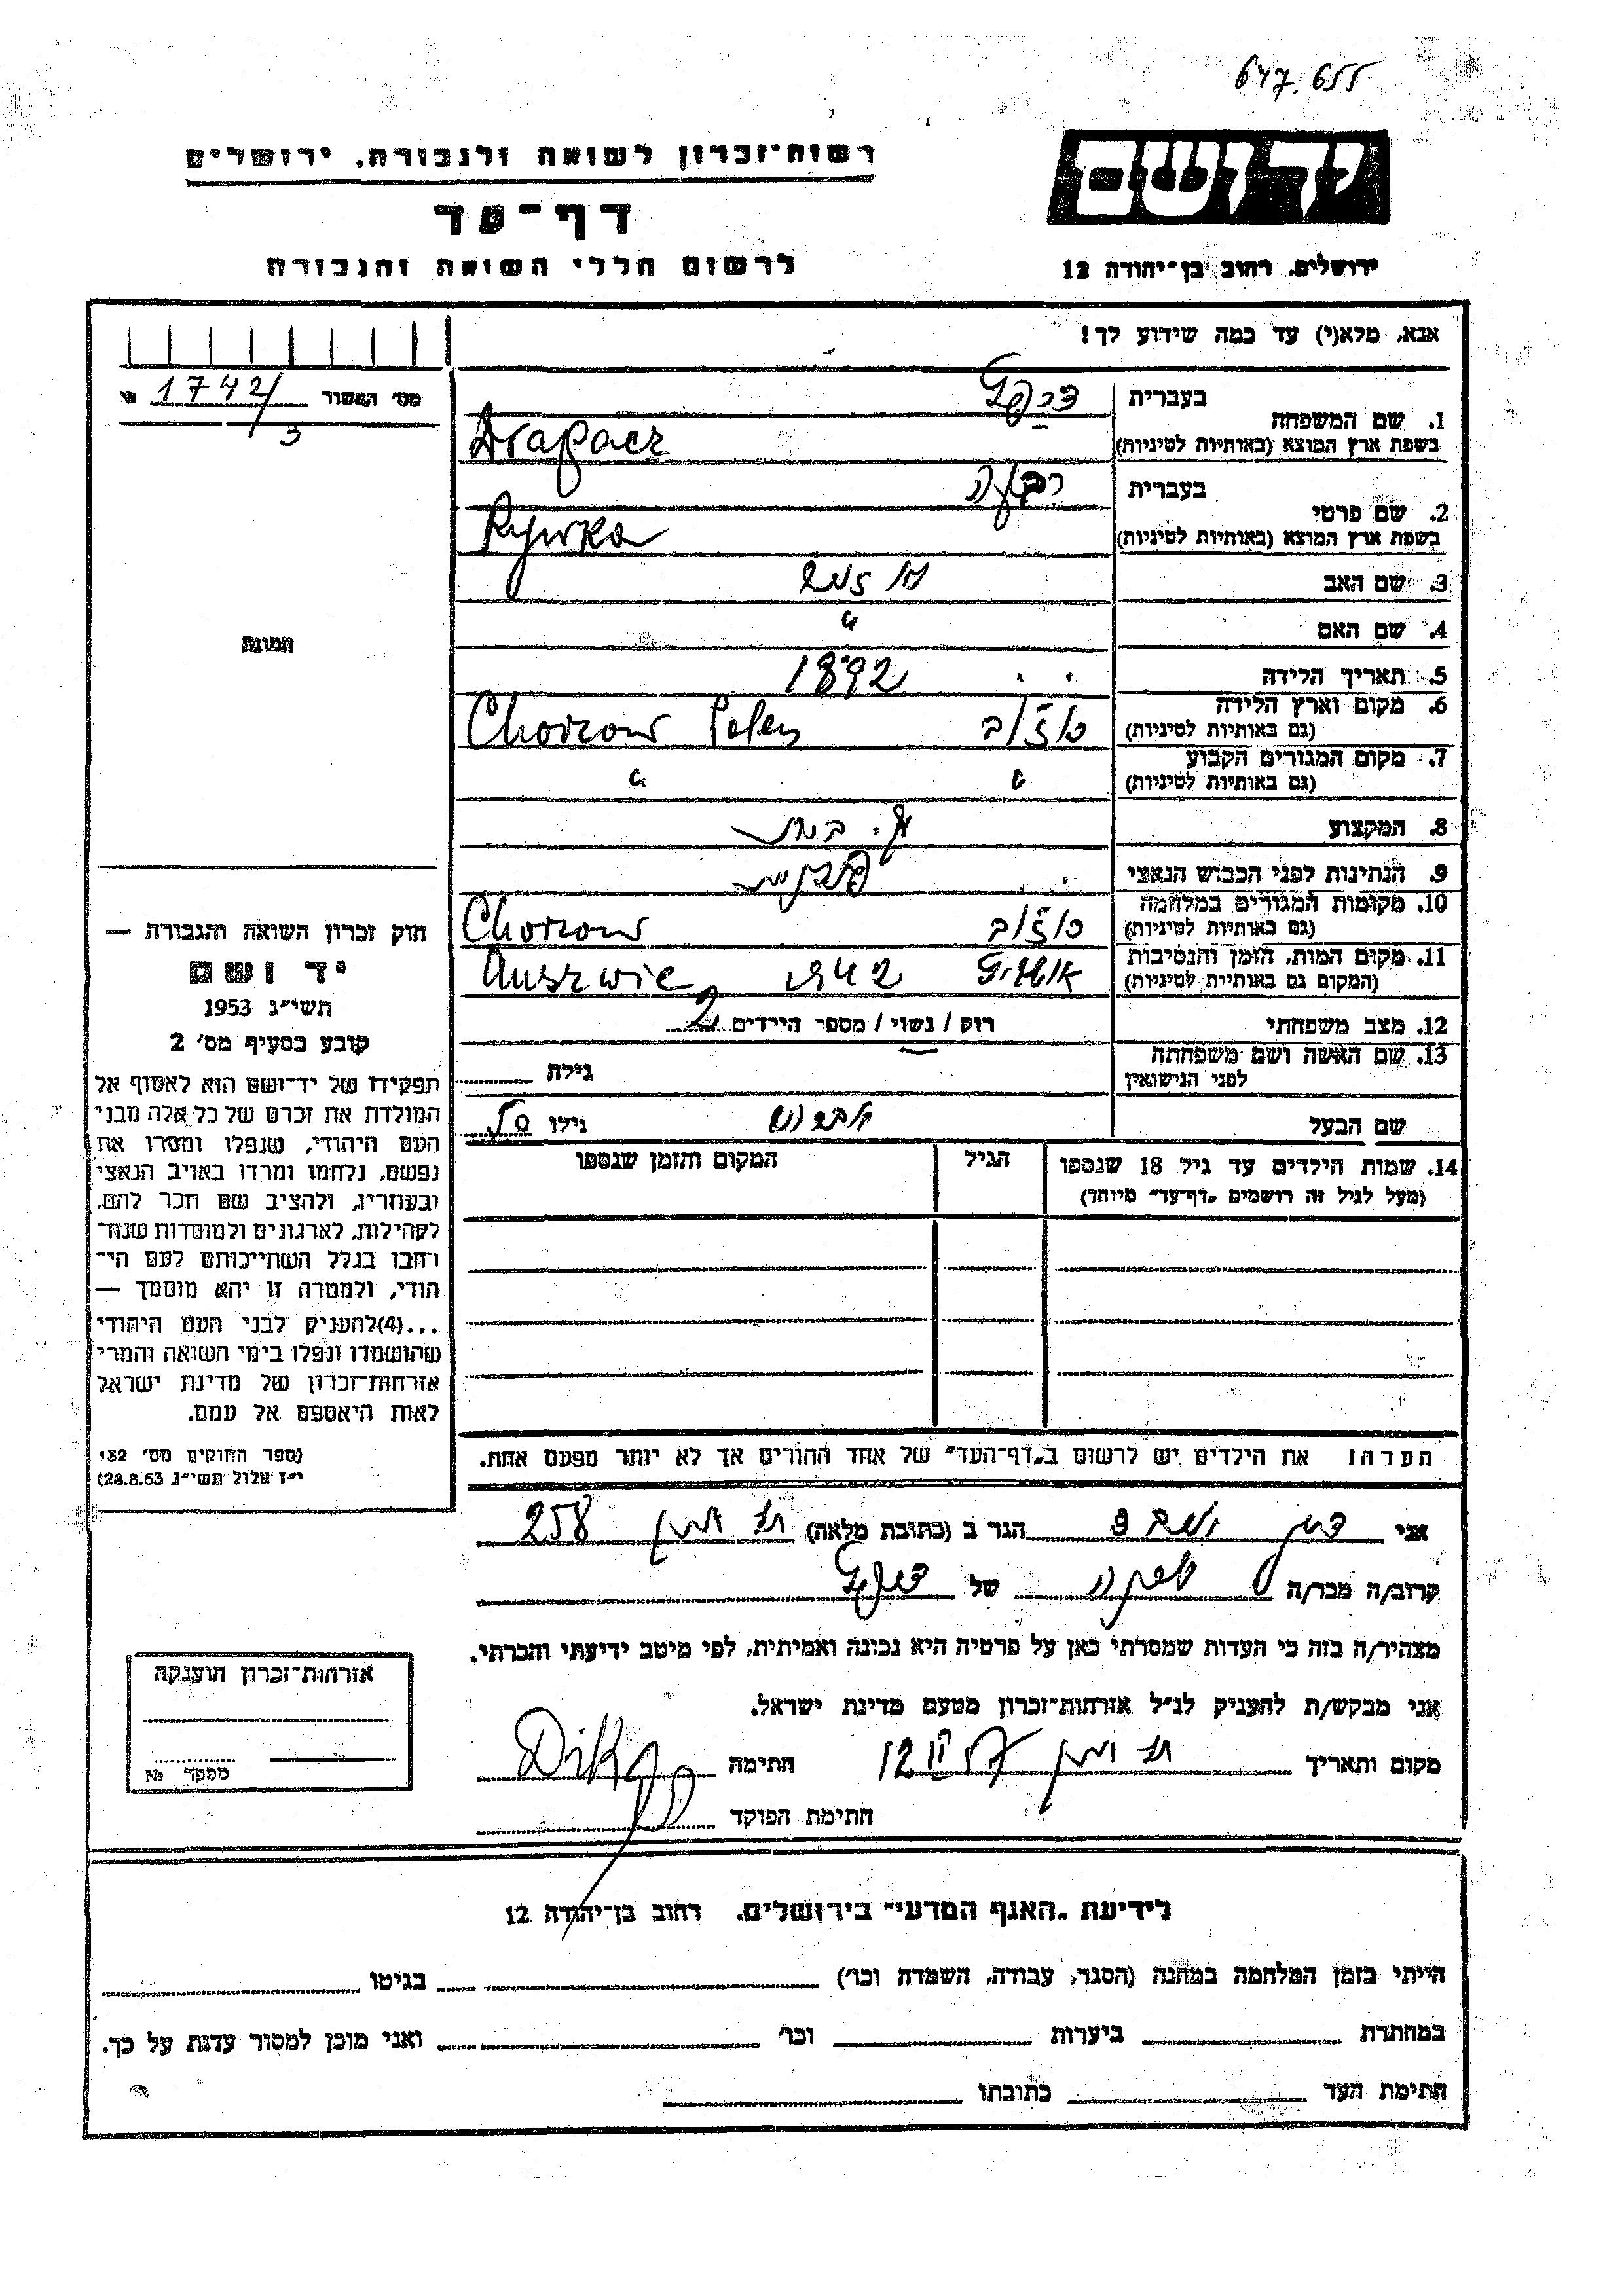 647.655
יד ושם
רשות-זכרון לשואה ולגבורה, ירושלים
דף-עד
לרשום חללי השואה והגבורה
ירושלים, רחוב בן-יהודה 12
אנא, מלא(י) עד כמה שידוע לך!
מס' האשור 1742/3 №
1. שם המשפחה
בעברית
בשפת ארץ המוצא (באותיות לטיניות) Drapacz
2. שם פרטי
בעברית רבקה
בשפת ארץ המוצא (באותיות לטיניות) Rywka
3. שם האב לא ידוע
4. שם האם "
5. תאריך הלידה 1892
6. מקום וארץ הלידה
(גם באותיות לטיניות) Chorzow Polen
7. מקום המגורים הקבוע
(גם באותיות לטיניות) " "
8. המקצוע ע. בית
9. הנתינות לפני הכבוש הנאצי פולנית
10. מקומות המגורים במלחמה
(גם באותיות לטיניות) Chorzow
11. מקום המות, הזמן והנסיבות
(המקום גם באותיות לטיניות) 1942 Auszwic
12. מצב משפחתי רוק / נשוי / מספר הילדים 2
13. שם האשה ושם משפחתה
לפני הנישואין
גילה
שם הבעל גילו 50
14. שמות הילדים עד גיל 18 שנספו
(מעל לגיל זה רושמים „דף-עד" מיוחד)
הגיל
המקום והזמן שנספו
הערה! את הילדים יש לרשום ב„דף-העד" של אחד ההורים אך לא יותר מפעם אחת.
תמונה
חוק זכרון השואה והגבורה —
יד ושם
תשי"ג 1953
קובע בסעיף מס' 2
תפקידו של יד-ושם הוא לאסוף אל
המולדת את זכרם של כל אלה מבני
העם היהודי, שנפלו ומסרו את
נפשם, נלחמו ומרדו באויב הנאצי
ובעוזריו, ולהציב שם וזכר להם,
לקהילות, לארגונים ולמוסדות שנח-
רחבו בגלל השתייכותם לעם הי-
הודי, ולמטרה זו יהא מוסמך —
...(4)להעניק לבני העם היהודי
שהושמדו ונפלו בימי השואה והמרי
אזרחות-זכרון של מדינת ישראל
לאות היאספם אל עמם.
(ספר החוקים מס' 132
י"ז אלול תשי"ג 28.8.53)
אני הגר ב (כתובת מלאה) 258
קרוב/ה מכר/ה של
מצהיר/ה בזה כי העדות שמסרתי כאן על פרטיה היא נכונה ואמיתית, לפי מיטב ידיעתי והכרתי.
אני מבקש/ת להעניק לנ"ל אזרחות-זכרון מטעם מדינת ישראל.
מקום ותאריך חתימה
חתימת הפוקד
אזרחות-זכרון הוענקה
מספר №
לידיעת „האגף המדעי" בירושלים, רחוב בן-יהודה 12
הייתי בזמן המלחמה במחנה (הסגר, עבודה, השמדה וכו') בגיטו
במחתרת ביערות וכו' ואני מוכן למסור עדות על כך.
חתימת העד כתובתו